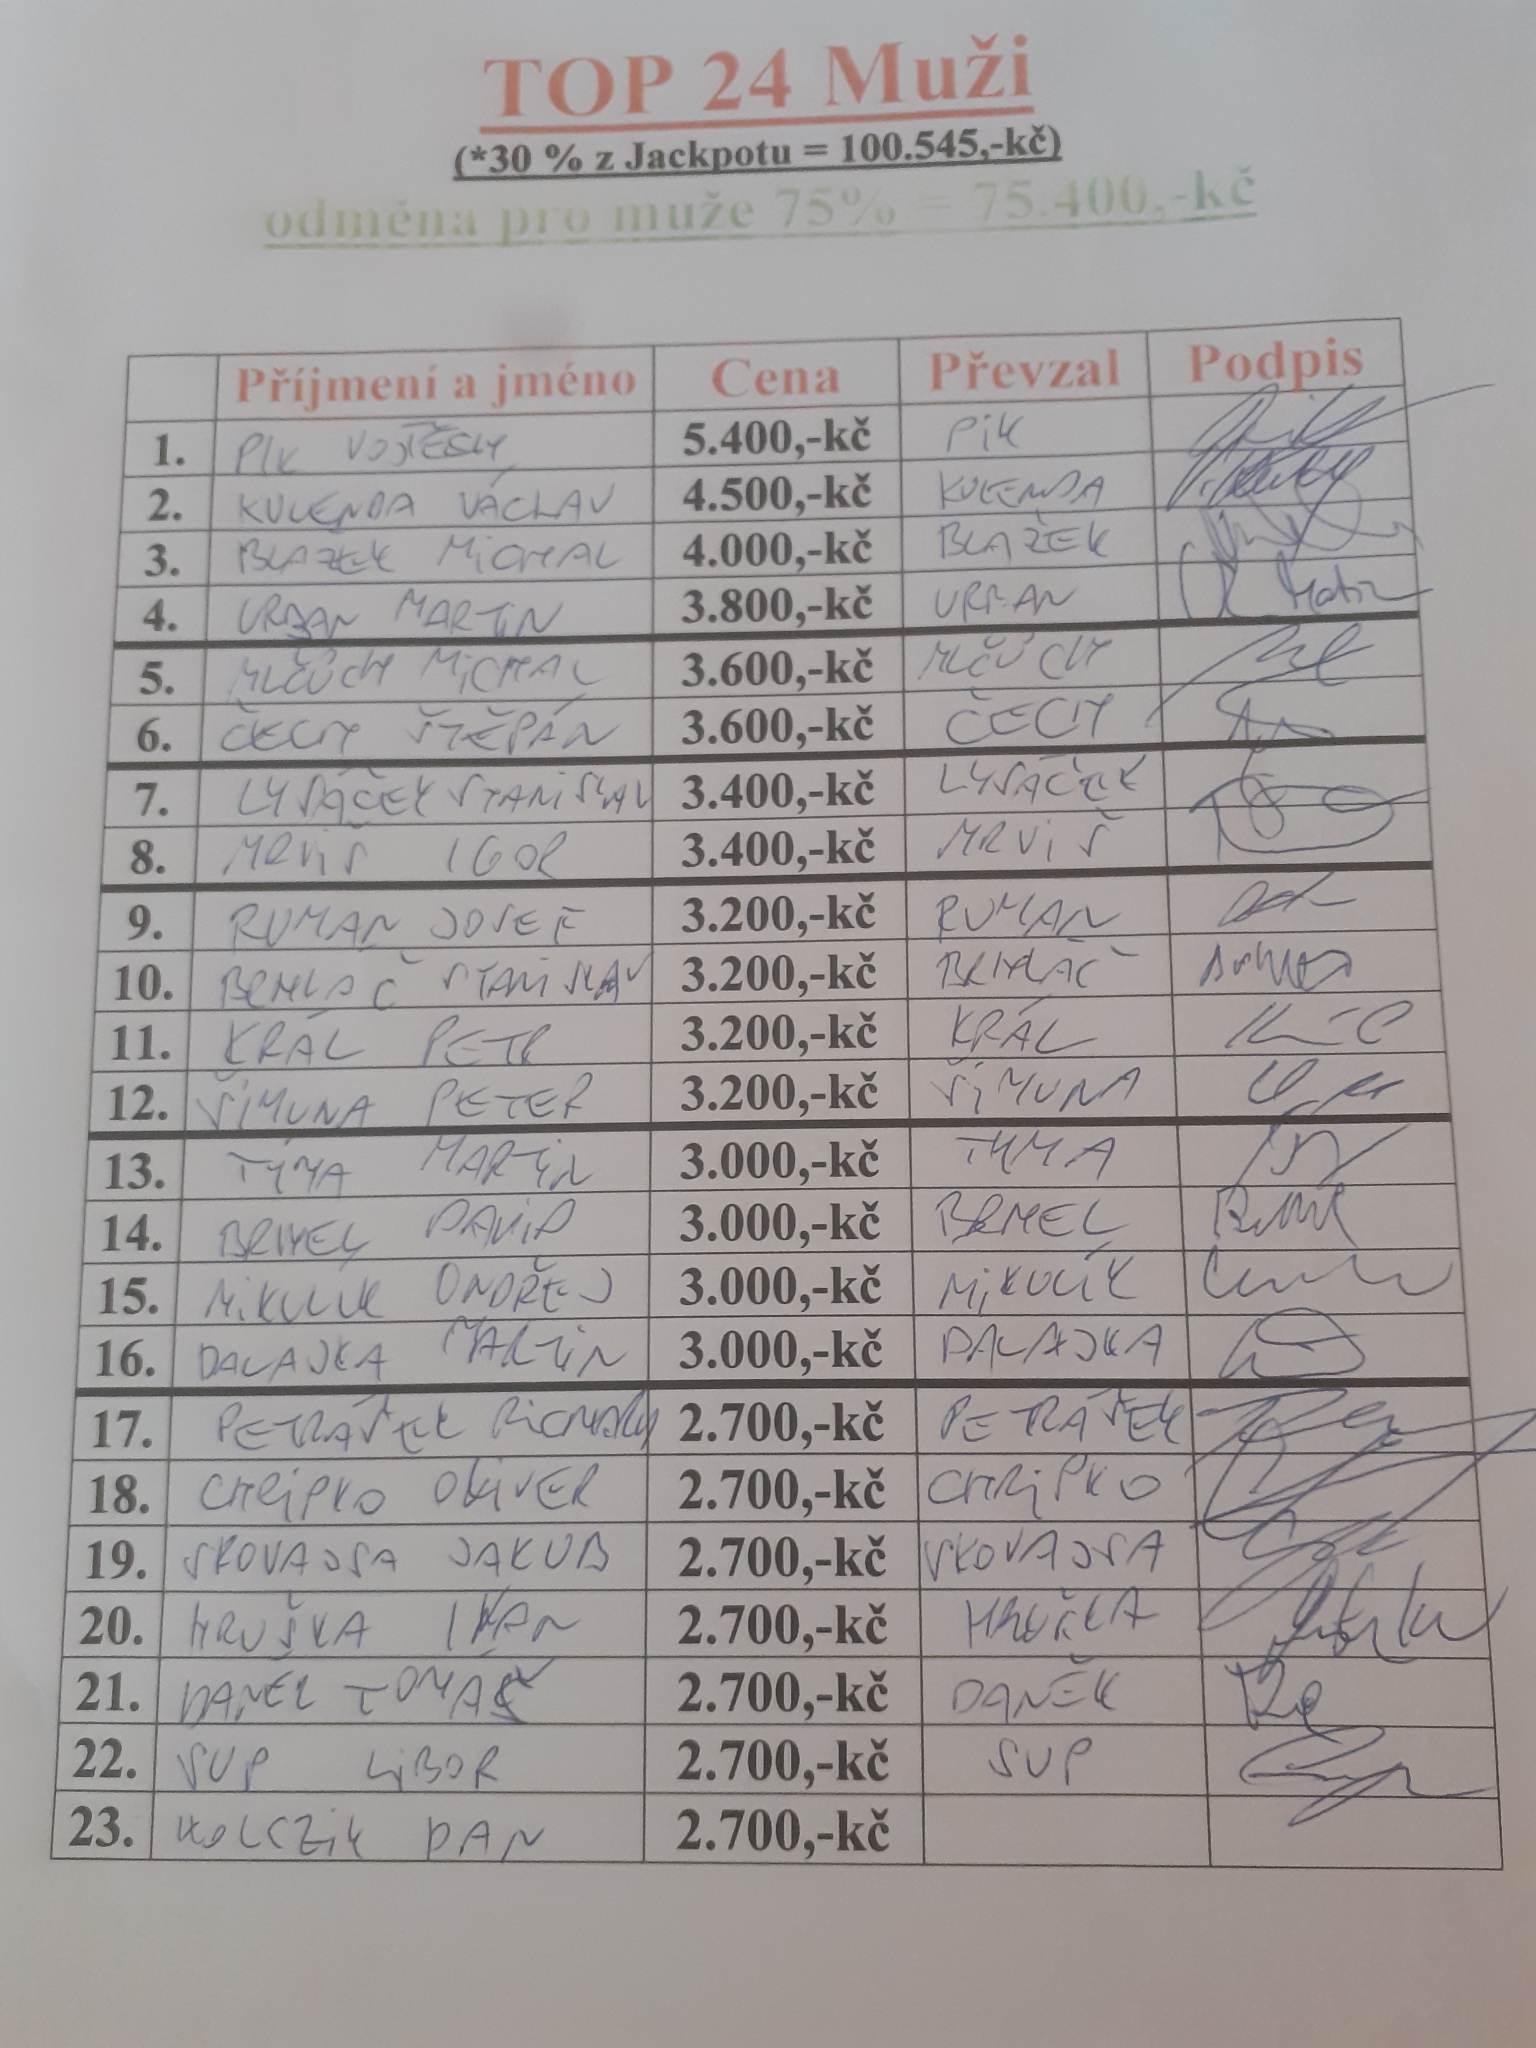 TOP 24 Muži
(*30 % z Jackpotu = 100.545,-kč)
odměna pro muže 75% = 75.400,-kč
Příjmení a jméno Cena Převzal Podpis
1. PIK VOJTĚCH 5.400,-kč PIK
2. KULENDA VÁCLAV 4.500,-kč KULENDA
3. BLAŽEK MICHAL 4.000,-kč BLAŽEK
4. URBAN MARTIN 3.800,-kč URBAN
5. MLČŮCH MICHAL 3.600,-kč MLČŮCH
6. ČECH ŠTĚPÁN 3.600,-kč ČECH
7. LYSÁČEK STANISLAV 3.400,-kč LYSÁČEK
8. MRVIŠ IGOR 3.400,-kč MRVIŠ
9. RUMAN JOSEF 3.200,-kč RUMAN
10. BRHLAČ STANISLAV 3.200,-kč BRHLAČ
11. KRÁL PETR 3.200,-kč KRÁL
12. ŠIMUNA PETER 3.200,-kč ŠIMUNA
13. TÝMA MARTIN 3.000,-kč TYMA
14. BRHEL DAVID 3.000,-kč BRHEL
15. MIKULÍK ONDŘEJ 3.000,-kč MIKULÍK
16. DALAJKA MARTIN 3.000,-kč DALAJKA
17. PETRÁŠEK RICHARD 2.700,-kč PETRÁŠEK
18. CHRIPKO OLIVER 2.700,-kč CHRIPKO
19. SKOVAJSA JAKUB 2.700,-kč SKOVAJSA
20. HRUŠKA IVAN 2.700,-kč HRUŠKA
21. DANĚK TOMÁŠ 2.700,-kč DANĚK
22. SUP LIBOR 2.700,-kč SUP
23. HOLCZIK DAN 2.700,-kč